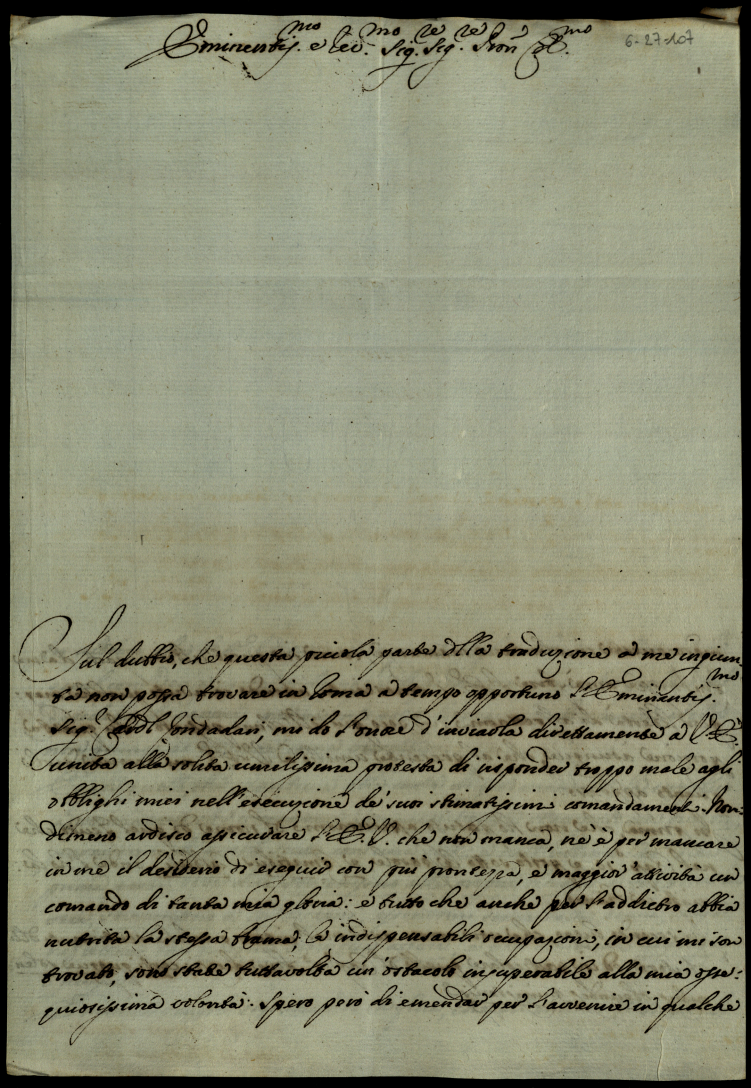 Eminentis.mo e Rev.mo Sig.re Sig.re Pron Col.mo
6-27-107
Sul dubbio, che questa piccola parte della traduzione a me ingiun
ta non possa trovare in Roma a tempo opportuno l'Eminentis.mo
Sig.r Card.l Zondadari, mi do l'onore d'inviarla direttamente a V. E.
unita alla solita umilissima protesta di risponder troppo male agli
obblighi miei nell'esecuzione de' suoi stimatissimi comandamenti. Non-
dimeno ardisco assicurare l'E. V. che non manca, ne è per mancare
in me il desiderio di eseguir con più prontezza, e maggior' attività un
comando di tanta mia gloria: e tutto che anche per l'addietro abbia
nutrita la stessa brama, le indispensabili occupazioni, in cui mi son
trovato, sono state tuttavolta un' ostacolo insuperabile alla mia osse=
quiosissima volontà. Spero però di emendar per l'avvenire in qualche